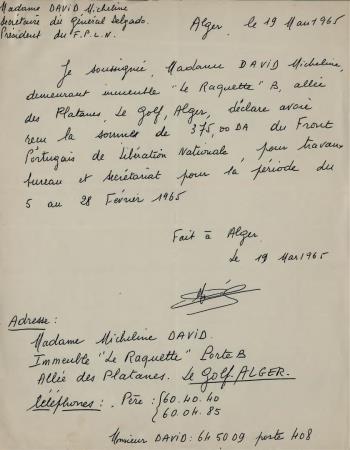 Madame DAVID Micheline
Secrétaire du général Delgado.
Président du F.P.L.N.
Alger, le 19 Mars 1965
Je soussignée, Madame DAVID Micheline,
demeurant immeuble "Le Raquette" B, allée
des Platanes, Le Golf, Alger, déclare avoir
reçu la somme de 375,00 DA du Front
Portugais de Libération Nationale pour travaux
bureau et secrétariat pour la période du
5 au 28 Février 1965
Fait à Alger
Le 19 Mars 1965
Adresse :
Madame Micheline DAVID.
Immeuble "Le Raquette" Porte B
Allée des Platanes. Le Golf. ALGER.
Téléphones : Père : 60.40.40
60.04.85
Monsieur DAVID : 64 50 09 poste 408